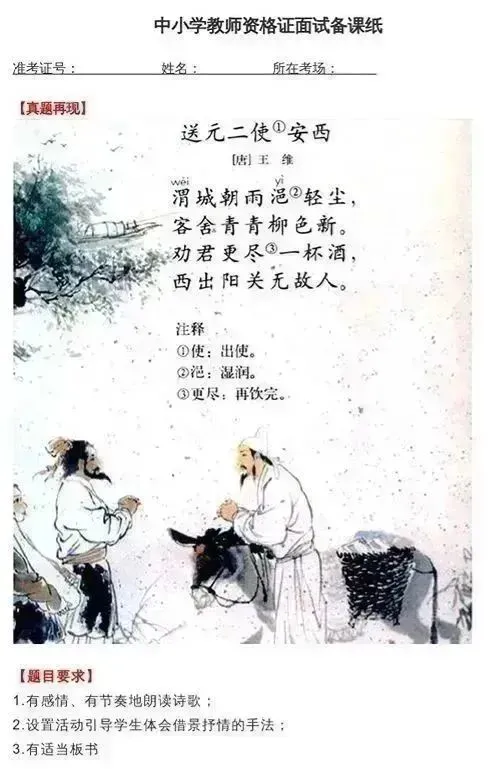 中小学教师资格证面试备课纸
准考证号： 姓名： 所在考场：
【真题再现】
送元二使①安西
[唐] 王 维
wèi yì
渭城朝雨浥②轻尘，
客舍青青柳色新。
劝君更尽③一杯酒，
西出阳关无故人。
注释
①使：出使。
②浥：湿润。
③更尽：再饮完。
【题目要求】
1.有感情、有节奏地朗读诗歌；
2.设置活动引导学生体会借景抒情的手法；
3.有适当板书